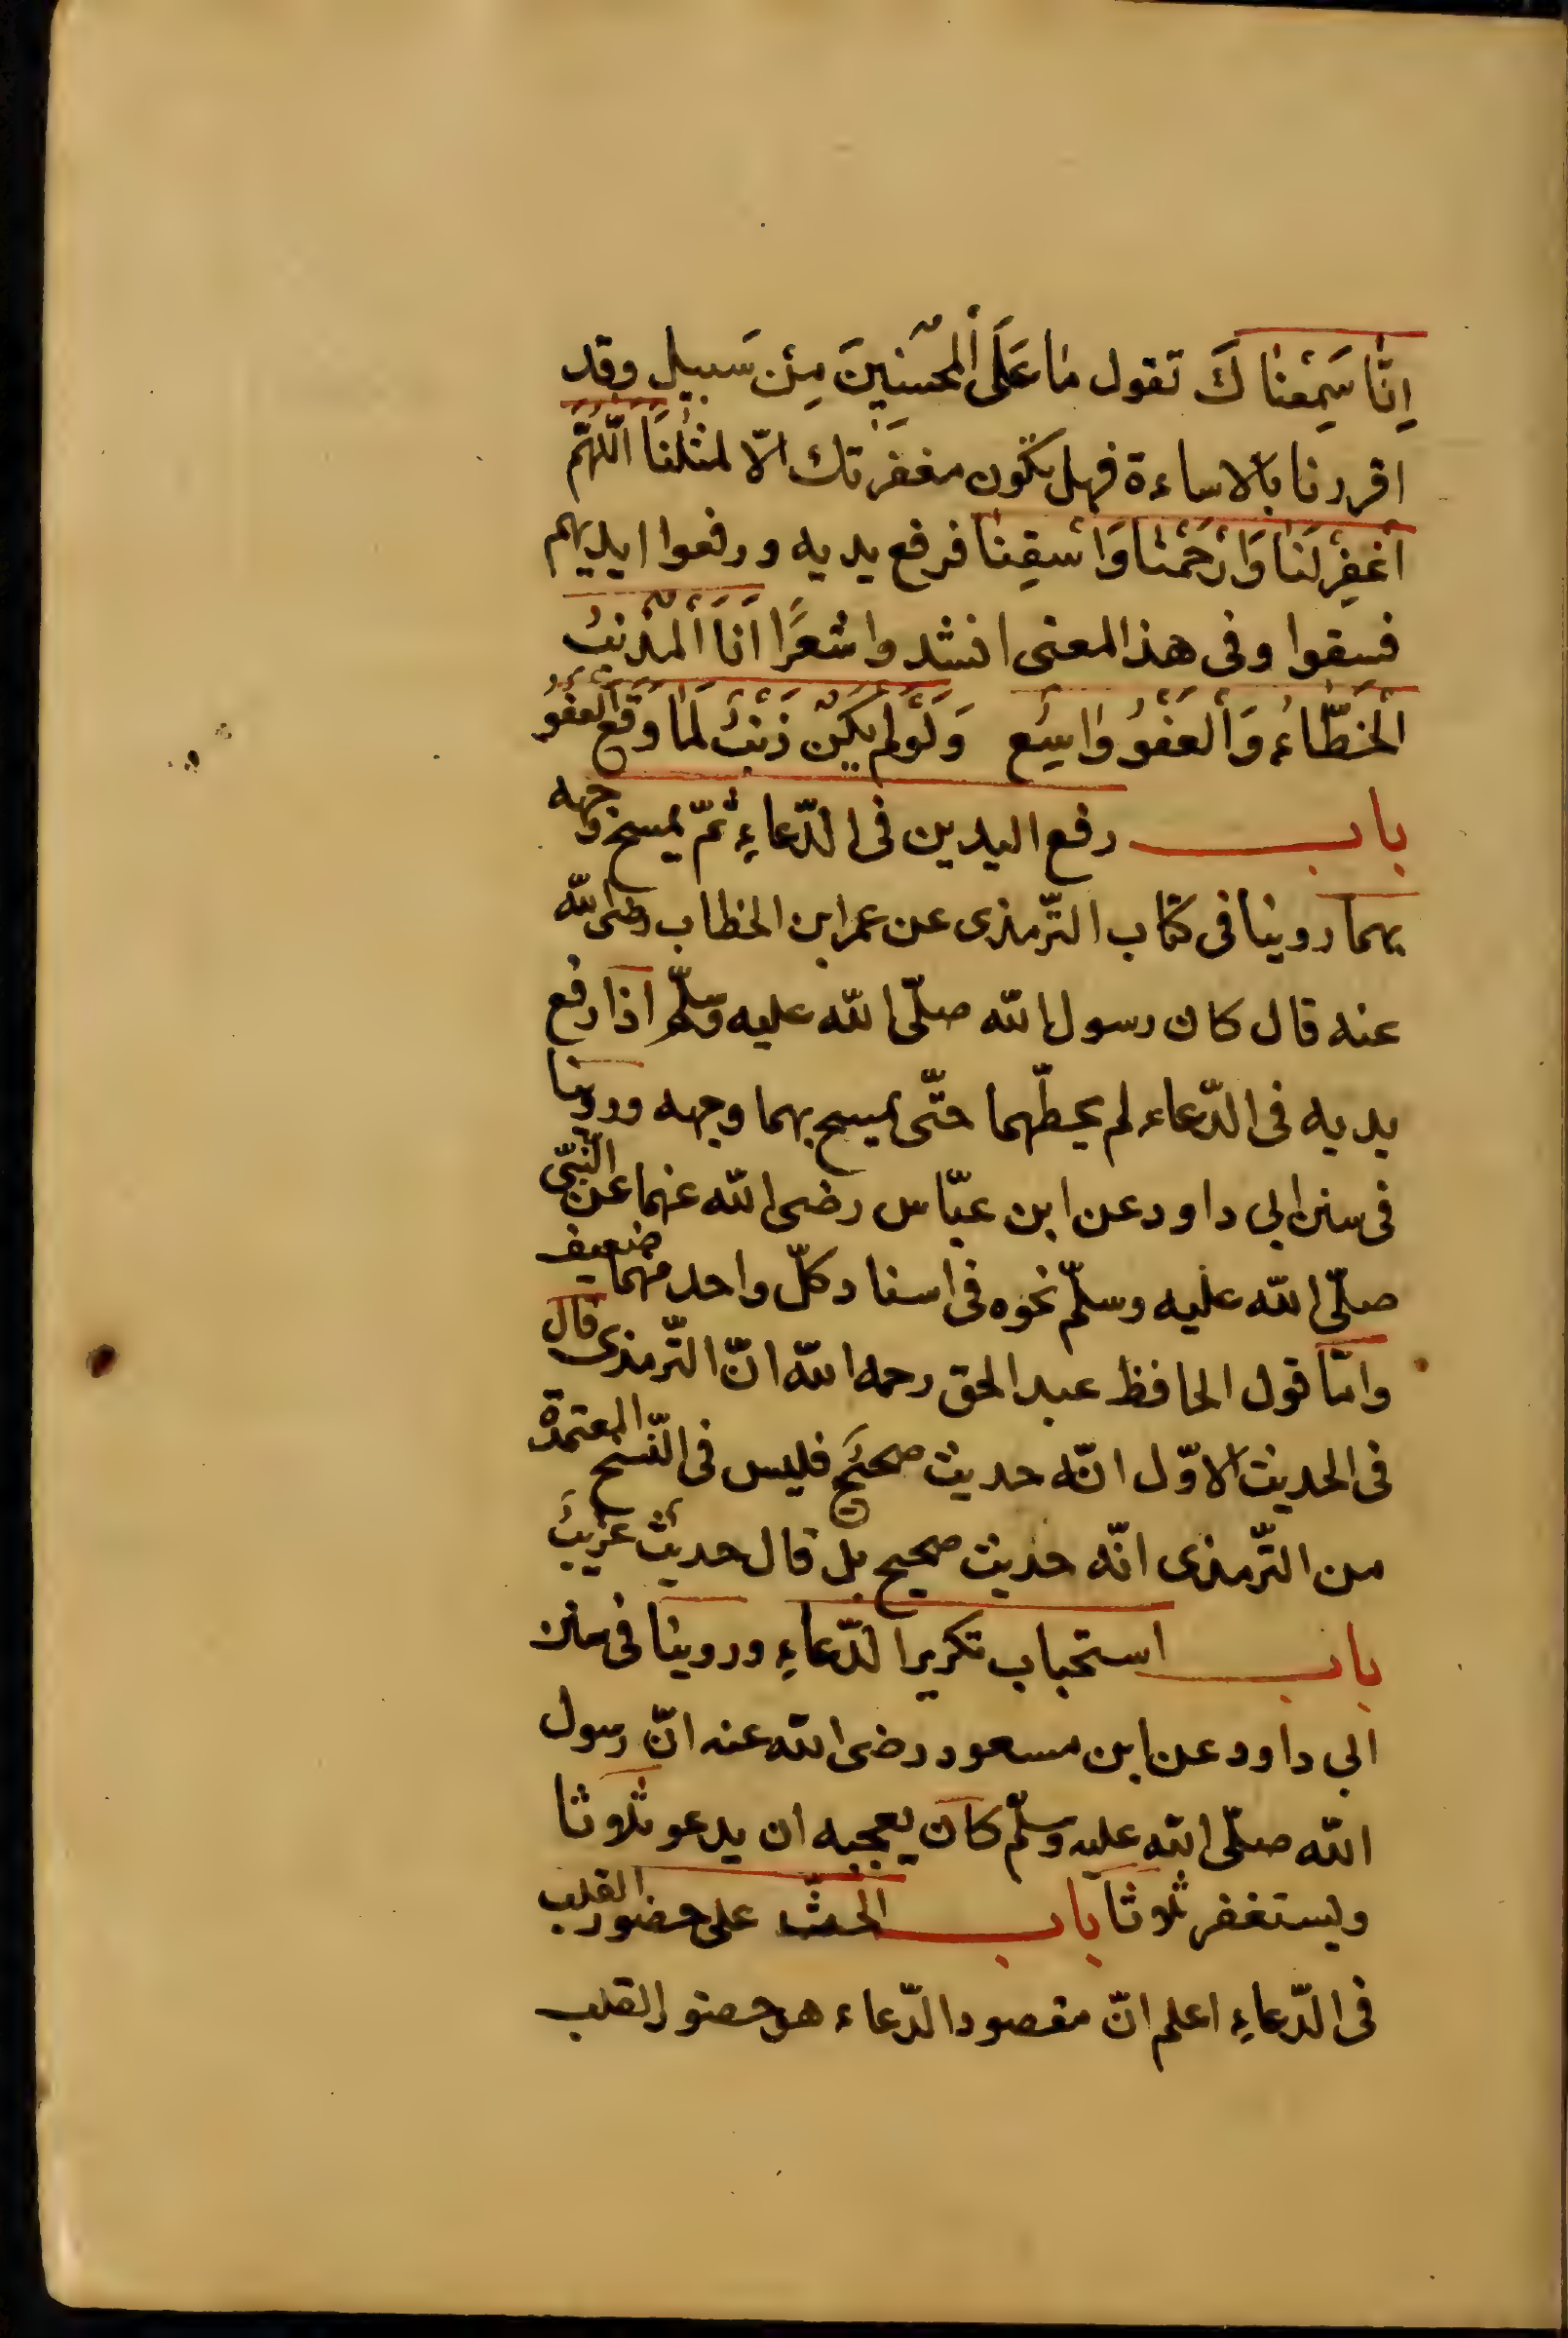 اِنَّا سَمِعْنَاكَ تقول مَا عَلَى الْمُحْسِنِينَ مِنْ سَبِيلٍ وقد
اقررنا بالاساءة فهل يكون مغفرتك الّا لمثلنا اَللّٰهُمَّ
اغْفِرْ لَنَا وَارْحَمْنَا وَاسْقِنَا فرفع يديه ورفعوا ايديهم
فسقوا وفى هذا المعنى انشدوا شعرًا اَنَا الْمُذْنِبُ
الْخَطَّاءُ وَالْعَفْوُ وَاسِع وَلَوْ لَمْ يَكُنْ ذَنْبٌ لَمَا وَقَعَ الْعَفْوُ
باب رفع اليدين فى الدّعاءِ ثمّ يمسح وجهه
بهما روينا فى كتاب التّرمذى عن عمر ابن الخطاب رضى الله
عنه قال كان رسول الله صلّى الله عليه وسلّم اذا رفع
يديه فى الدّعاء لم يحطّهما حتّى يمسح بهما وجهه وروينا
فى سنن ابى داود عن ابن عبّاس رضى الله عنهما عن النّبىّ
صلّى الله عليه وسلّم نحوه فى اسناد كلّ واحد منهما ضعيف
وامّا قول الحافظ عبد الحق رحمه الله انّ التّرمذى قال
فى الحديث الاوّل انّه حديث صحيح فليس فى النّسخ المعتمدة
من التّرمذى انّه حديث صحيح بل قال حديث غريب
باب استحباب تكرير الدّعاءِ وروينا فى سنن
ابى داود عن ابن مسعود رضى الله عنه انّ رسول
الله صلّى الله عليه وسلّم كان يعجبه ان يدعو ثلاوثا
ويستغفر ثلاوثا باب الحثّ على حضور القلب
فى الدّعاءِ اعلم انّ مقصود الدّعاء هو حضور القلب